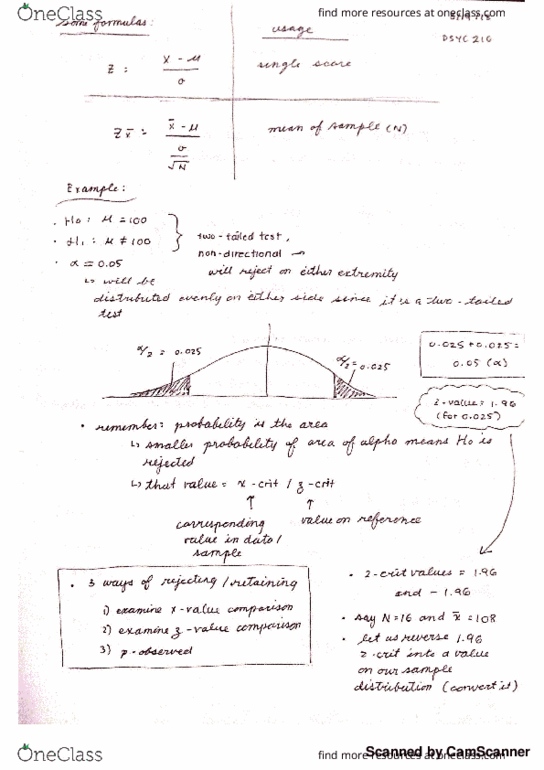 OneClass
find more resources at oneclass.com
some formulas:
usage
PSYC 210
Z = x - μ / σ
single score
Z x̄ = x̄ - μ / σ / √N
mean of sample (N)
Example:
• H0: μ = 100
• H1: μ ≠ 100
two-tailed test,
non-directional →
will reject on either extremity
• α = 0.05
↳ will be
distributed evenly on either side since it is a two-tailed
test
α/2 = 0.025
α/2 = 0.025
0.025 + 0.025 =
0.05 (α)
z-value = 1.96
(for 0.025)
• remember: probability is the area
↳ smaller probability of area of alpha means H0 is
rejected
↳ that value = x-crit / z-crit
↑ ↑
corresponding
value in data/
sample
value on reference
• 3 ways of rejecting/retaining
1) examine x-value comparison
2) examine z-value comparison
3) p-observed
• z-crit values = 1.96
and - 1.96
• say N=16 and x̄ = 108
• let us reverse 1.96
z-crit into a value
on our sample
distribution (convert it)
OneClass
find more resources at oneclass.com
Scanned by CamScanner